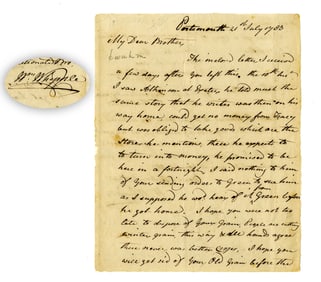 Portsmouth 21st July 1783
My Dear Brother
The inclosed letter I received
a few days after you left this, the 10th Inst
I saw Atkinson at Exeter, he told much the
same story that he writes was then on his
way home could get no money from Tracy
but was obliged to take goods which are the
store he mentions, these he expects to
to turn into money, he promised to be
here in a fortnight I said nothing to him
of Your sending order to Green to sue him
as I supposed he wod hear of it from Green before
he got home. I hope you were not too
late to dispose of Your Grain People are cutting
winter grain this way & all hands agree
there never was better Crops, I hope you
will get rid of Your Old Grain before the
Wm Whipple